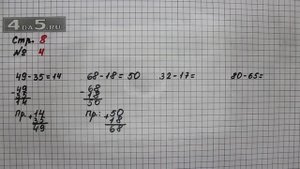 4BA5.RU
Стр. 8
№ 4
49-35=14 68-18=50 32-17= 80-65=
- 49 - 68
35 18
14 50
Пр. + 14 Пр: + 50
35 18
49 68